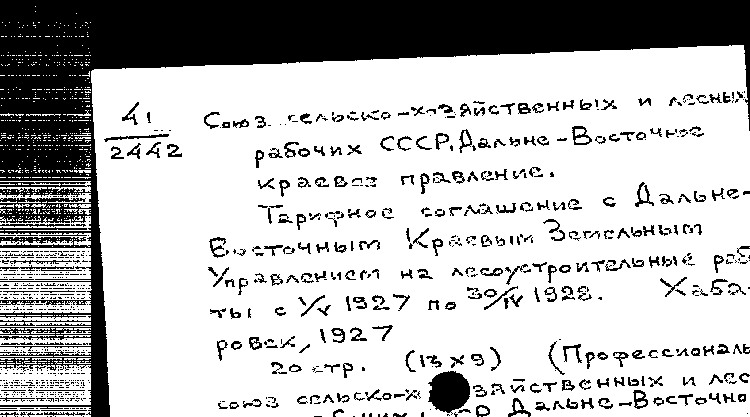 41
2442
Союз сельско-хозяйственных и лесных
рабочих СССР. Дальне-Восточное
краевое правление.
Тарифное соглашение с Дальне-
Восточным Краевым Земельным
Управлением на лесоустроительные рабо
ты с 1/V 1927 по 30/IV 1928. Хаба-
ровск, 1927
20 стр. (13×9) (Профессиональ
союз сельско-хозяйственных и лес
Дальне-Восточно